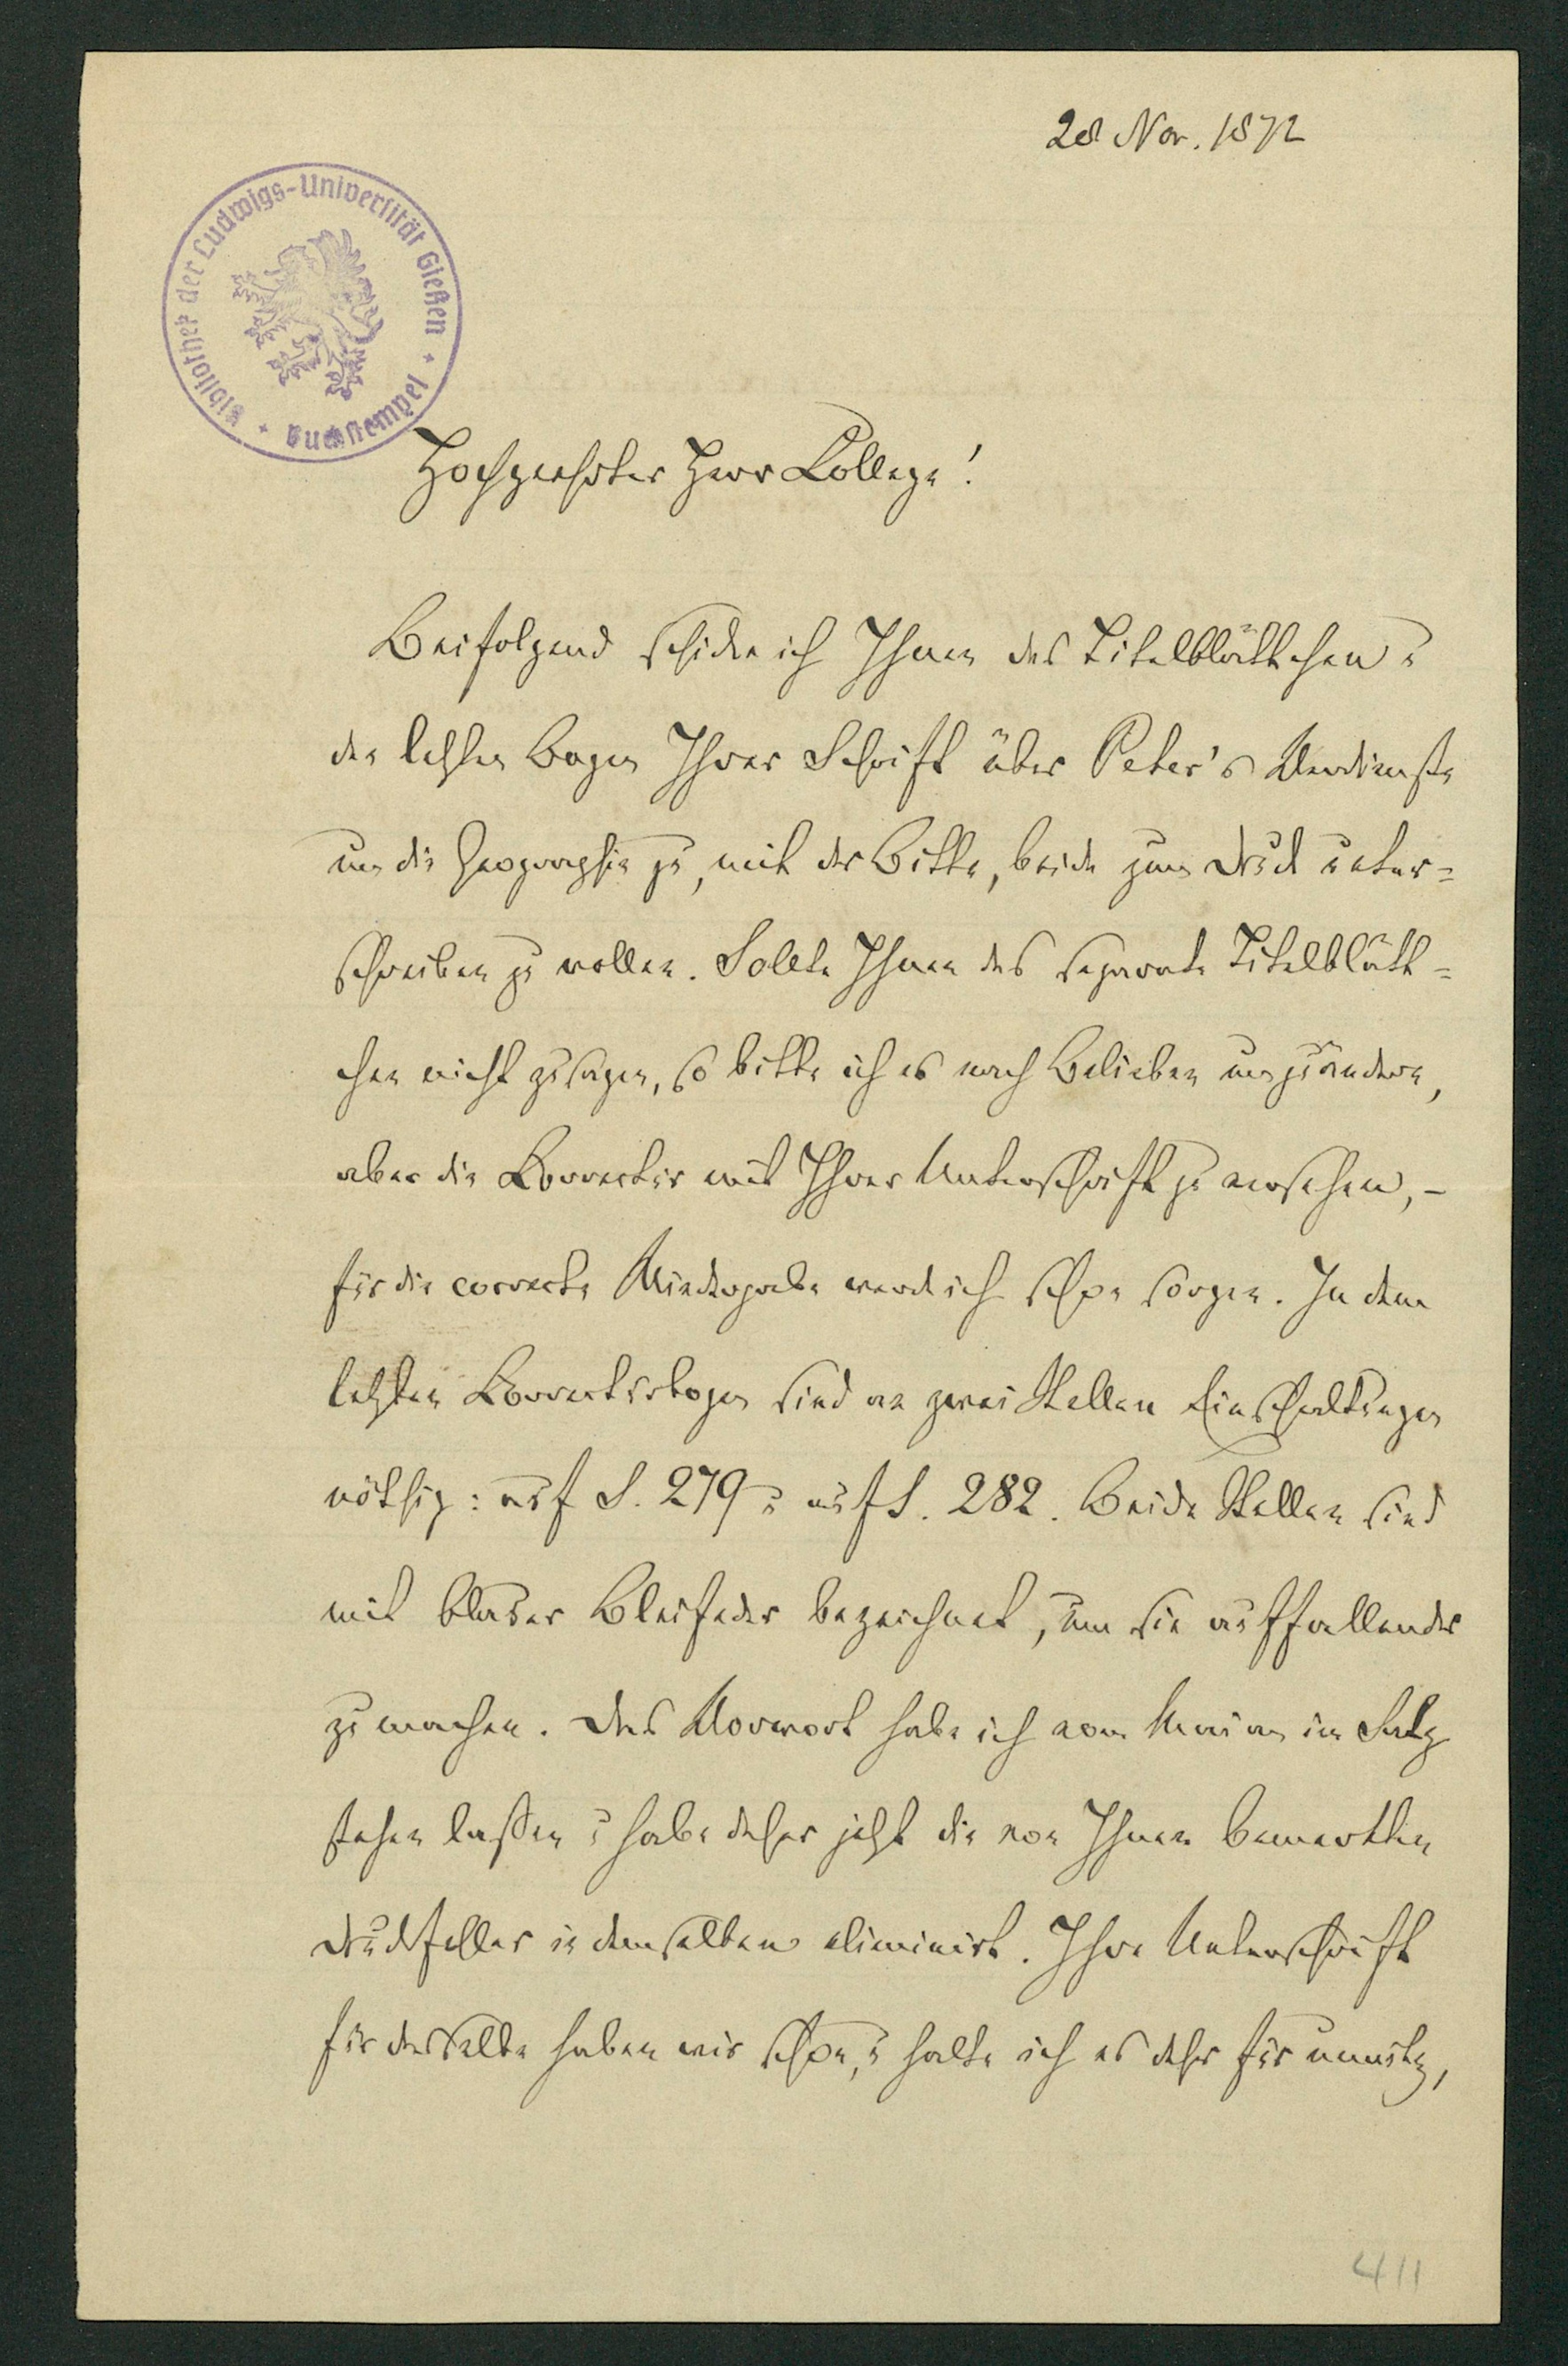 28 Nov. 1872
Bibliothek der Ludwigs-Universität Gießen
Buchstempel
Hochgeehrter Herr College!
Beifolgend schicke ich Ihnen das Titelblättchen u
den letzten Bogen Ihrer Schrift über Peter's Verdienste
um die Geographie zu, mit der Bitte, beide zum Druck unter=
schreiben zu wollen. Sollte Ihnen das separate Titelblätt=
chen nicht zusagen, so bitte ich es nach Belieben umzuändern,
aber die Correctur mit Ihrer Unterschrift zu versehen, –
für die correcte Wiedergabe werde ich schon sorgen. In dem
letzten Correcturbogen sind an zwei Stellen Einschaltungen
nöthig: auf S. 279 u auf S. 282. Beide Stellen sind
mit blauer Bleifeder bezeichnet, um sie auffallender
zu machen. Das Vorwort habe ich vom Mai an im Satz
stehen lassen u habe daher jetzt die von Ihnen bemerkten
Druckfehler in demselben eliminirt. Ihre Unterschrift
für dasselbe haben wir schon, u halte ich es daher für unnütz,
411